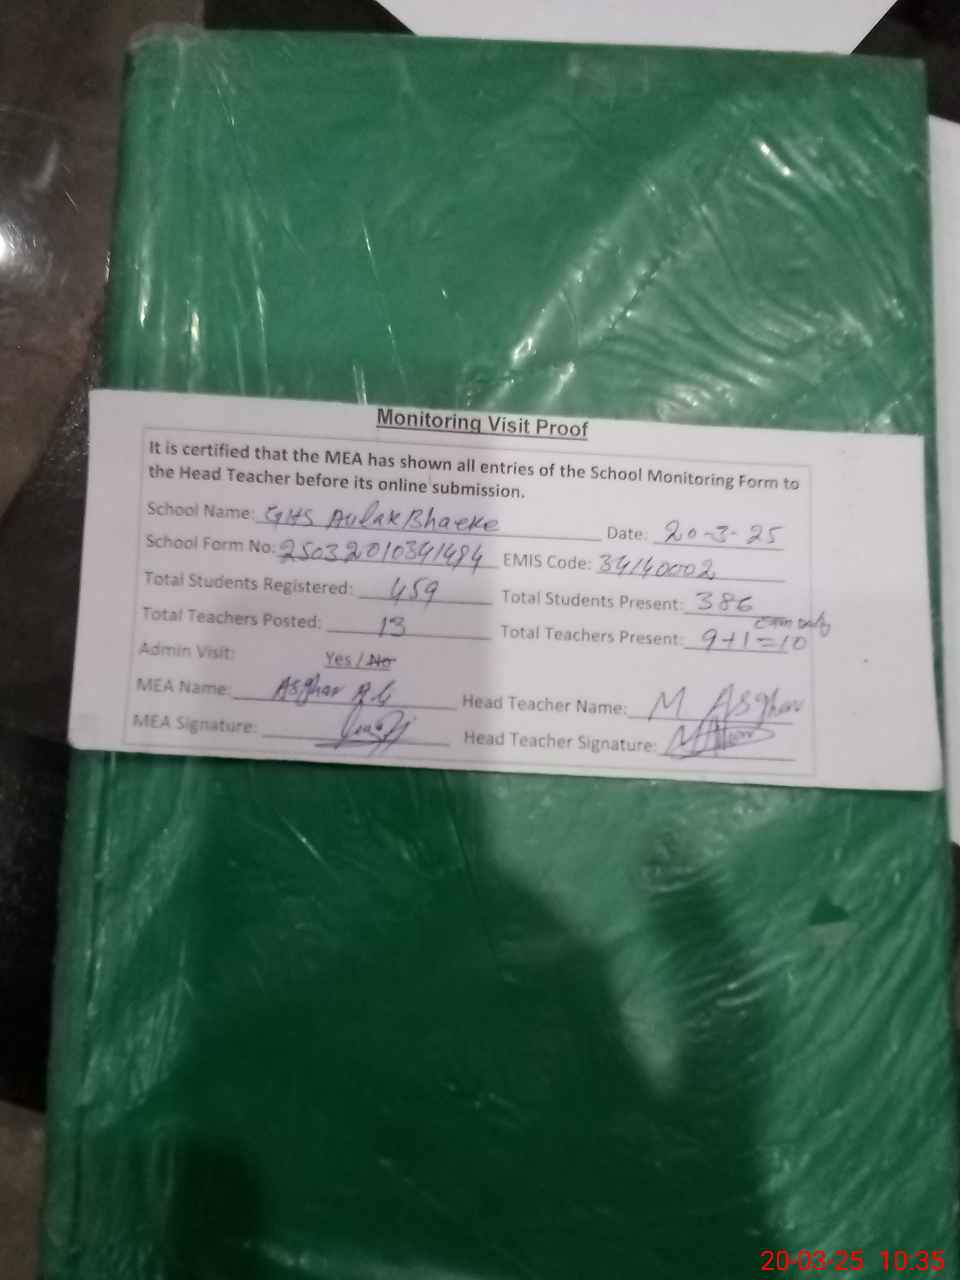 Monitoring Visit Proof
It is certified that the MEA has shown all entries of the School Monitoring Form to
the Head Teacher before its online submission.
School Name: GHS Aulak Bhaeke Date: 20-3-25
School Form No: 25032010341494 EMIS Code: 34140002
Total Students Registered: 459 Total Students Present: 386
Total Teachers Posted: 13 Total Teachers Present: 9+1=10
Admin Visit: Yes / No
MEA Name: Asghar Head Teacher Name: M Asghar
MEA Signature: Head Teacher Signature:
20-03-25 10:35